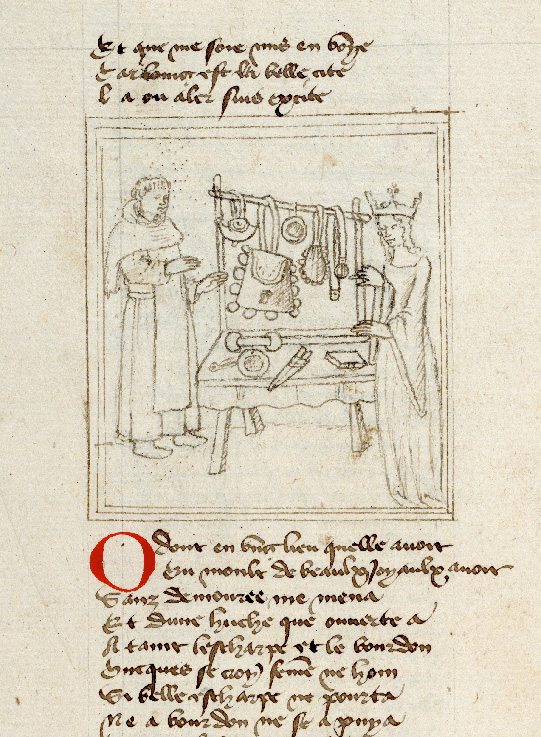 Et que me soie mis en voye
Car bonne est la belle cite
La ou aler suis excite
Odont en ung lieu quelle avoit
Ou moult de beaulx joyaulx avoit
Sanz demouree me mena
Et dune huche que ouverte a
A taint lescharpe et le bourdon
Oncques se croy femme ne hom
Si belle escharpe ne porta
Ne a bourdon ne se apuya